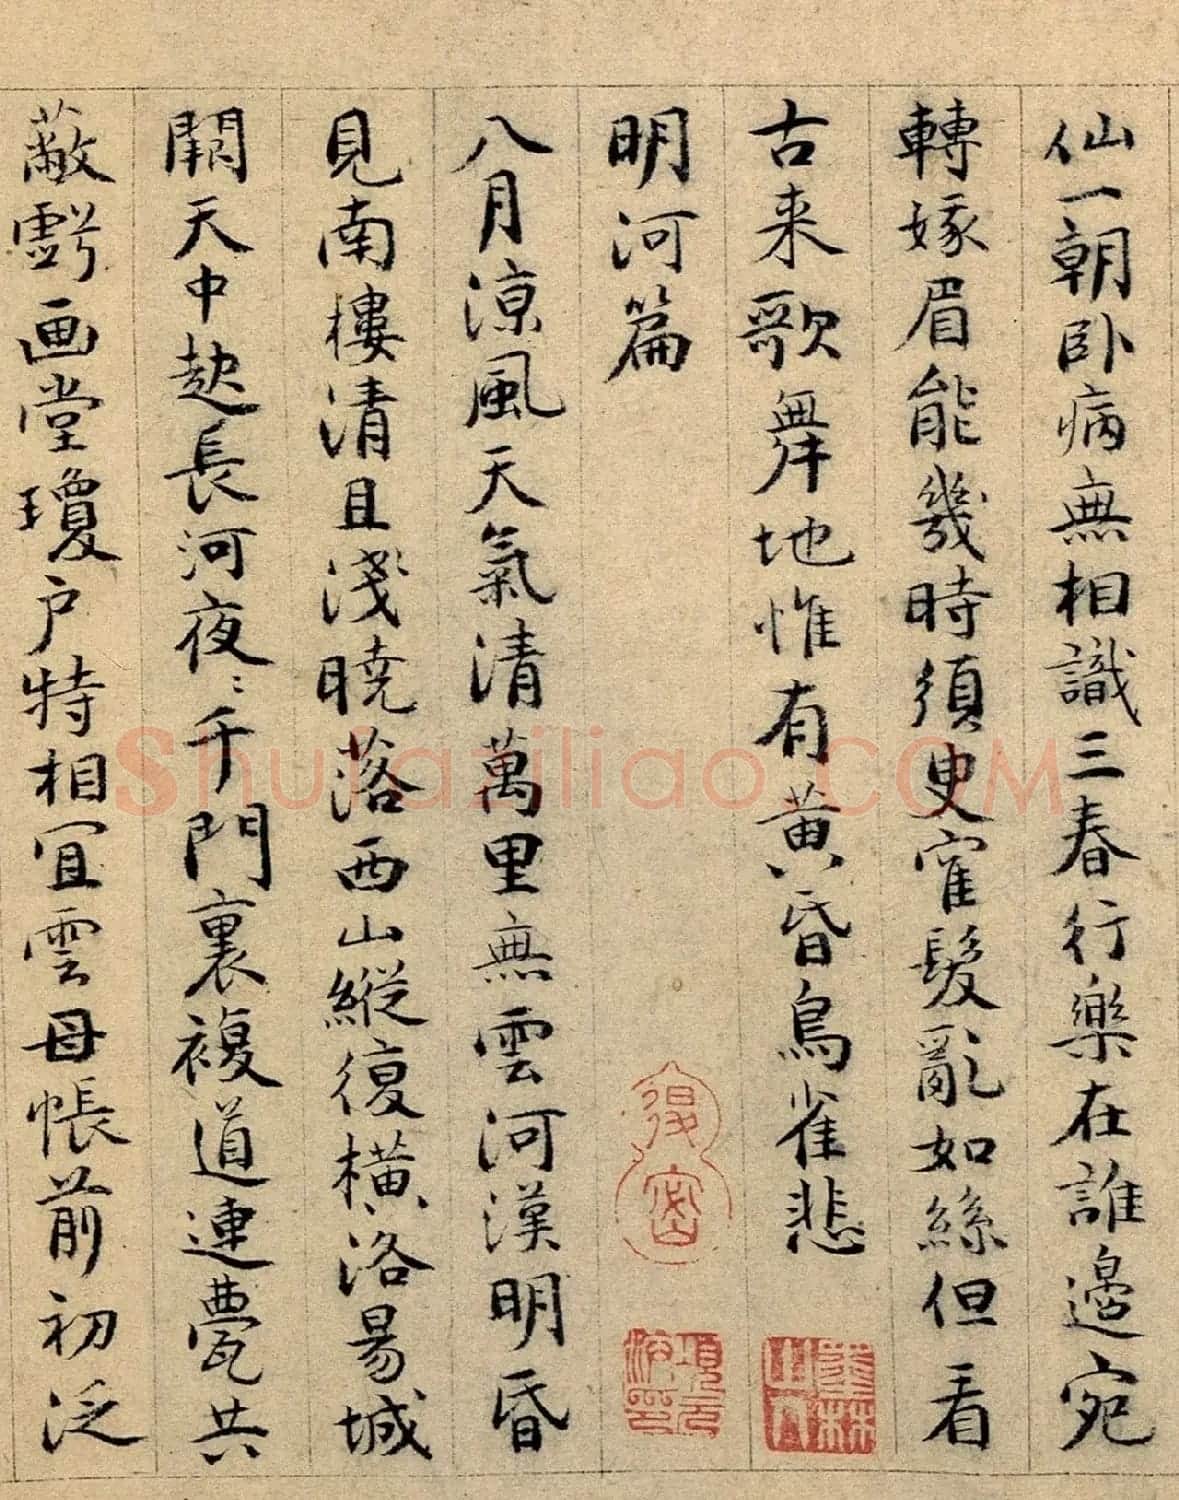 仙一朝卧病無相識三春行樂在誰邉宛
轉娥眉能幾時須臾鶴髮亂如絲但看
古来歌舞地惟有黄昏鳥雀悲
明河篇
八月涼風天氣清萬里無雲河漢明昏
見南樓清且淺暁落西山縱復橫洛昜城
闕天中起長河夜〻千門裏複道連甍共
蔽虧画堂瓊户特相宜雲母帳前初泛
shufaziliao.COM